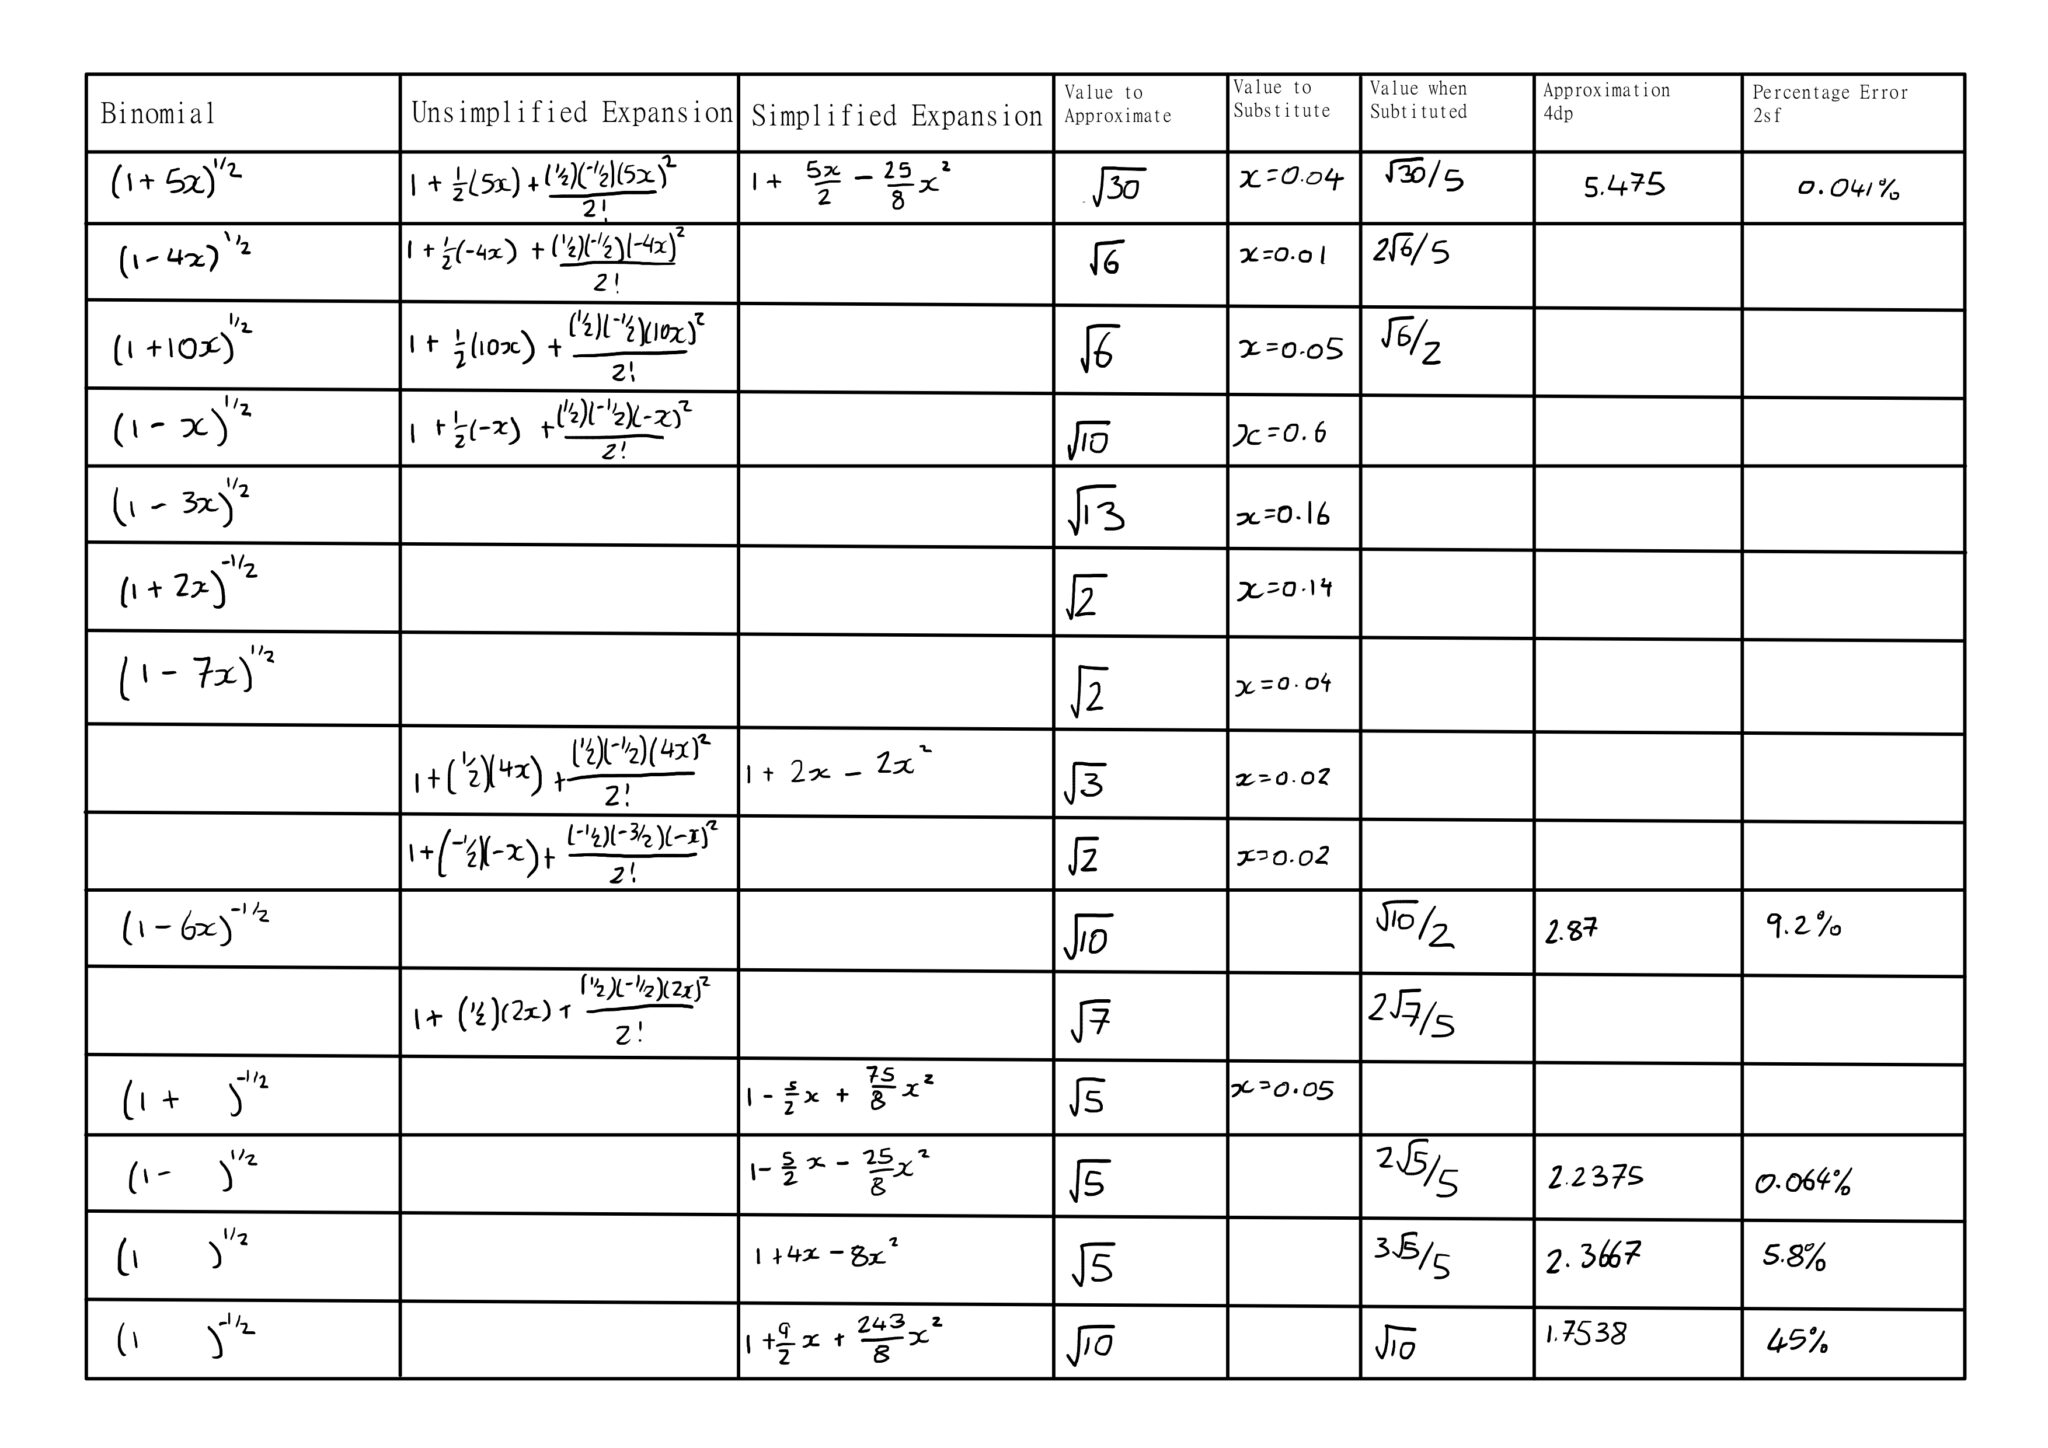 Binomial | Unsimplified Expansion | Simplified Expansion | Value to Approximate | Value to Substitute | Value when Subtituted | Approximation 4dp | Percentage Error 2sf
(1+5x)^1/2 | 1 + 1/2(5x) + (1/2)(-1/2)(5x)^2/2! | 1 + 5x/2 - 25/8 x^2 | √30 | x=0.04 | √30/5 | 5.475 | 0.041%
(1-4x)^1/2 | 1 + 1/2(-4x) + (1/2)(-1/2)(-4x)^2/2! | √6 | x=0.01 | 2√6/5
(1+10x)^1/2 | 1 + 1/2(10x) + (1/2)(-1/2)(10x)^2/2! | √6 | x=0.05 | √6/2
(1-x)^1/2 | 1 + 1/2(-x) + (1/2)(-1/2)(-x)^2/2! | √10 | x=0.6
(1-3x)^1/2 | √13 | x=0.16
(1+2x)^-1/2 | √2 | x=0.14
(1-7x)^1/2 | √2 | x=0.04
1+(1/2)(4x) + (1/2)(-1/2)(4x)^2/2! | 1 + 2x - 2x^2 | √3 | x=0.02
1+(-1/2)(-x) + (-1/2)(-3/2)(-x)^2/2! | √2 | x=0.02
(1-6x)^-1/2 | √10 | √10/2 | 2.87 | 9.2%
1+ (1/2)(2x) + (1/2)(-1/2)(2x)^2/2! | √7 | 2√7/5
(1+ )^-1/2 | 1 - 5/2 x + 75/8 x^2 | √5 | x=0.05
(1- )^1/2 | 1 - 5/2 x - 25/8 x^2 | √5 | 2√5/5 | 2.2375 | 0.064%
(1 )^1/2 | 1+4x-8x^2 | √5 | 3√5/5 | 2.3667 | 5.8%
(1 )^-1/2 | 1 + 9/2 x + 243/8 x^2 | √10 | √10 | 1.7538 | 45%